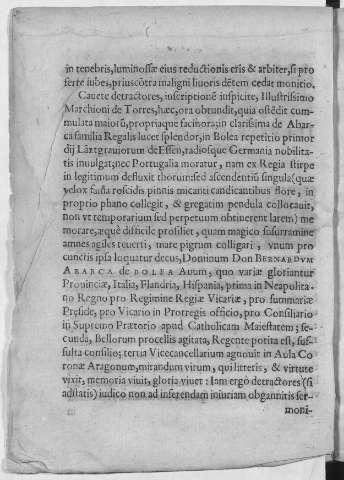 in tenebris, luminossæ eius reductionis eris & arbiter, si pro
ferte iubes, priuscōtra maligni liuoris dētem cedat monitio.
Cauete detractores, inscriptionē inspicite, Illustrissimo
Marchioni de Torres, hæc, ora obtrundit, quia ostēdit cum-
mulata maiorū, propriaque facinora, in clarissima de Abar-
ca familia Regalis lucet splendor, in Bolea repetitio primor
dij Lātgrauiorum de Essen, radiosque Germania nobilita-
tis inuulgat; nec Portugalia moratur, nam ex Regia stirpe
in legitimum defluxit thorum: sed ascendentiū singula (quæ
velox fama roscidis pinnis micanti candicantibus flore, in
proprio phano collegit, & gregatim pendula collocauit,
non vt temporarium sed perpetuum obtinerent larem) me
morare, æquè difficile profiliet, quam magico susurramine
amnes agiles reuerti, mare pigrum colligari, vnum pro
cunctis ipsa loquatur decus, Dominum Don BERNARDVM
ABARCA de BOLEA Auum, quo variæ gloriantur
Prouinciæ, Italia, Flandria, Hispania, prima in Neapolita
no Regno pro Regimine Regiæ Vicariæ, pro summariæ
Præside, pro Vicario in Protregis officio, pro Consiliario
in Supremo Prætorio apud Catholicam Maiestatem; se-
cunda, Bellorum procellis agitata, Regente potita est, suf-
fulta consilio; tertia Vicecancellarium agnouit in Aula Co
ronæ Aragonum, mirandum virum, qui litteris, & virtute
vixit, memoria viuit, gloria viuet: Iam ergò detractores (si
adstatis) iudico non ad inferendam iniuriam obgannitis ser-
moni-